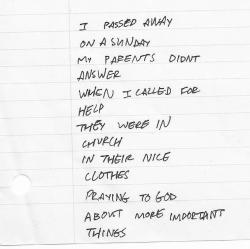 I PASSED AWAY
ON A SUNDAY
MY PARENTS DIDNT
ANSWER
WHEN I CALLED FOR
HELP
THEY WERE IN
CHURCH
IN THEIR NICE
CLOTHES
PRAYING TO GOD
ABOUT MORE IMPORTANT
THINGS